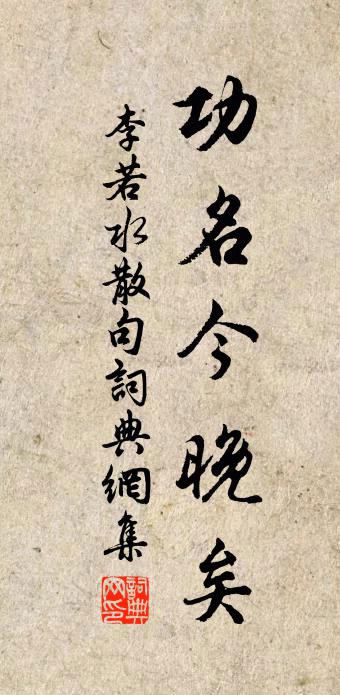 功名今晚矣
李若水散句詞典網集
詞典網印